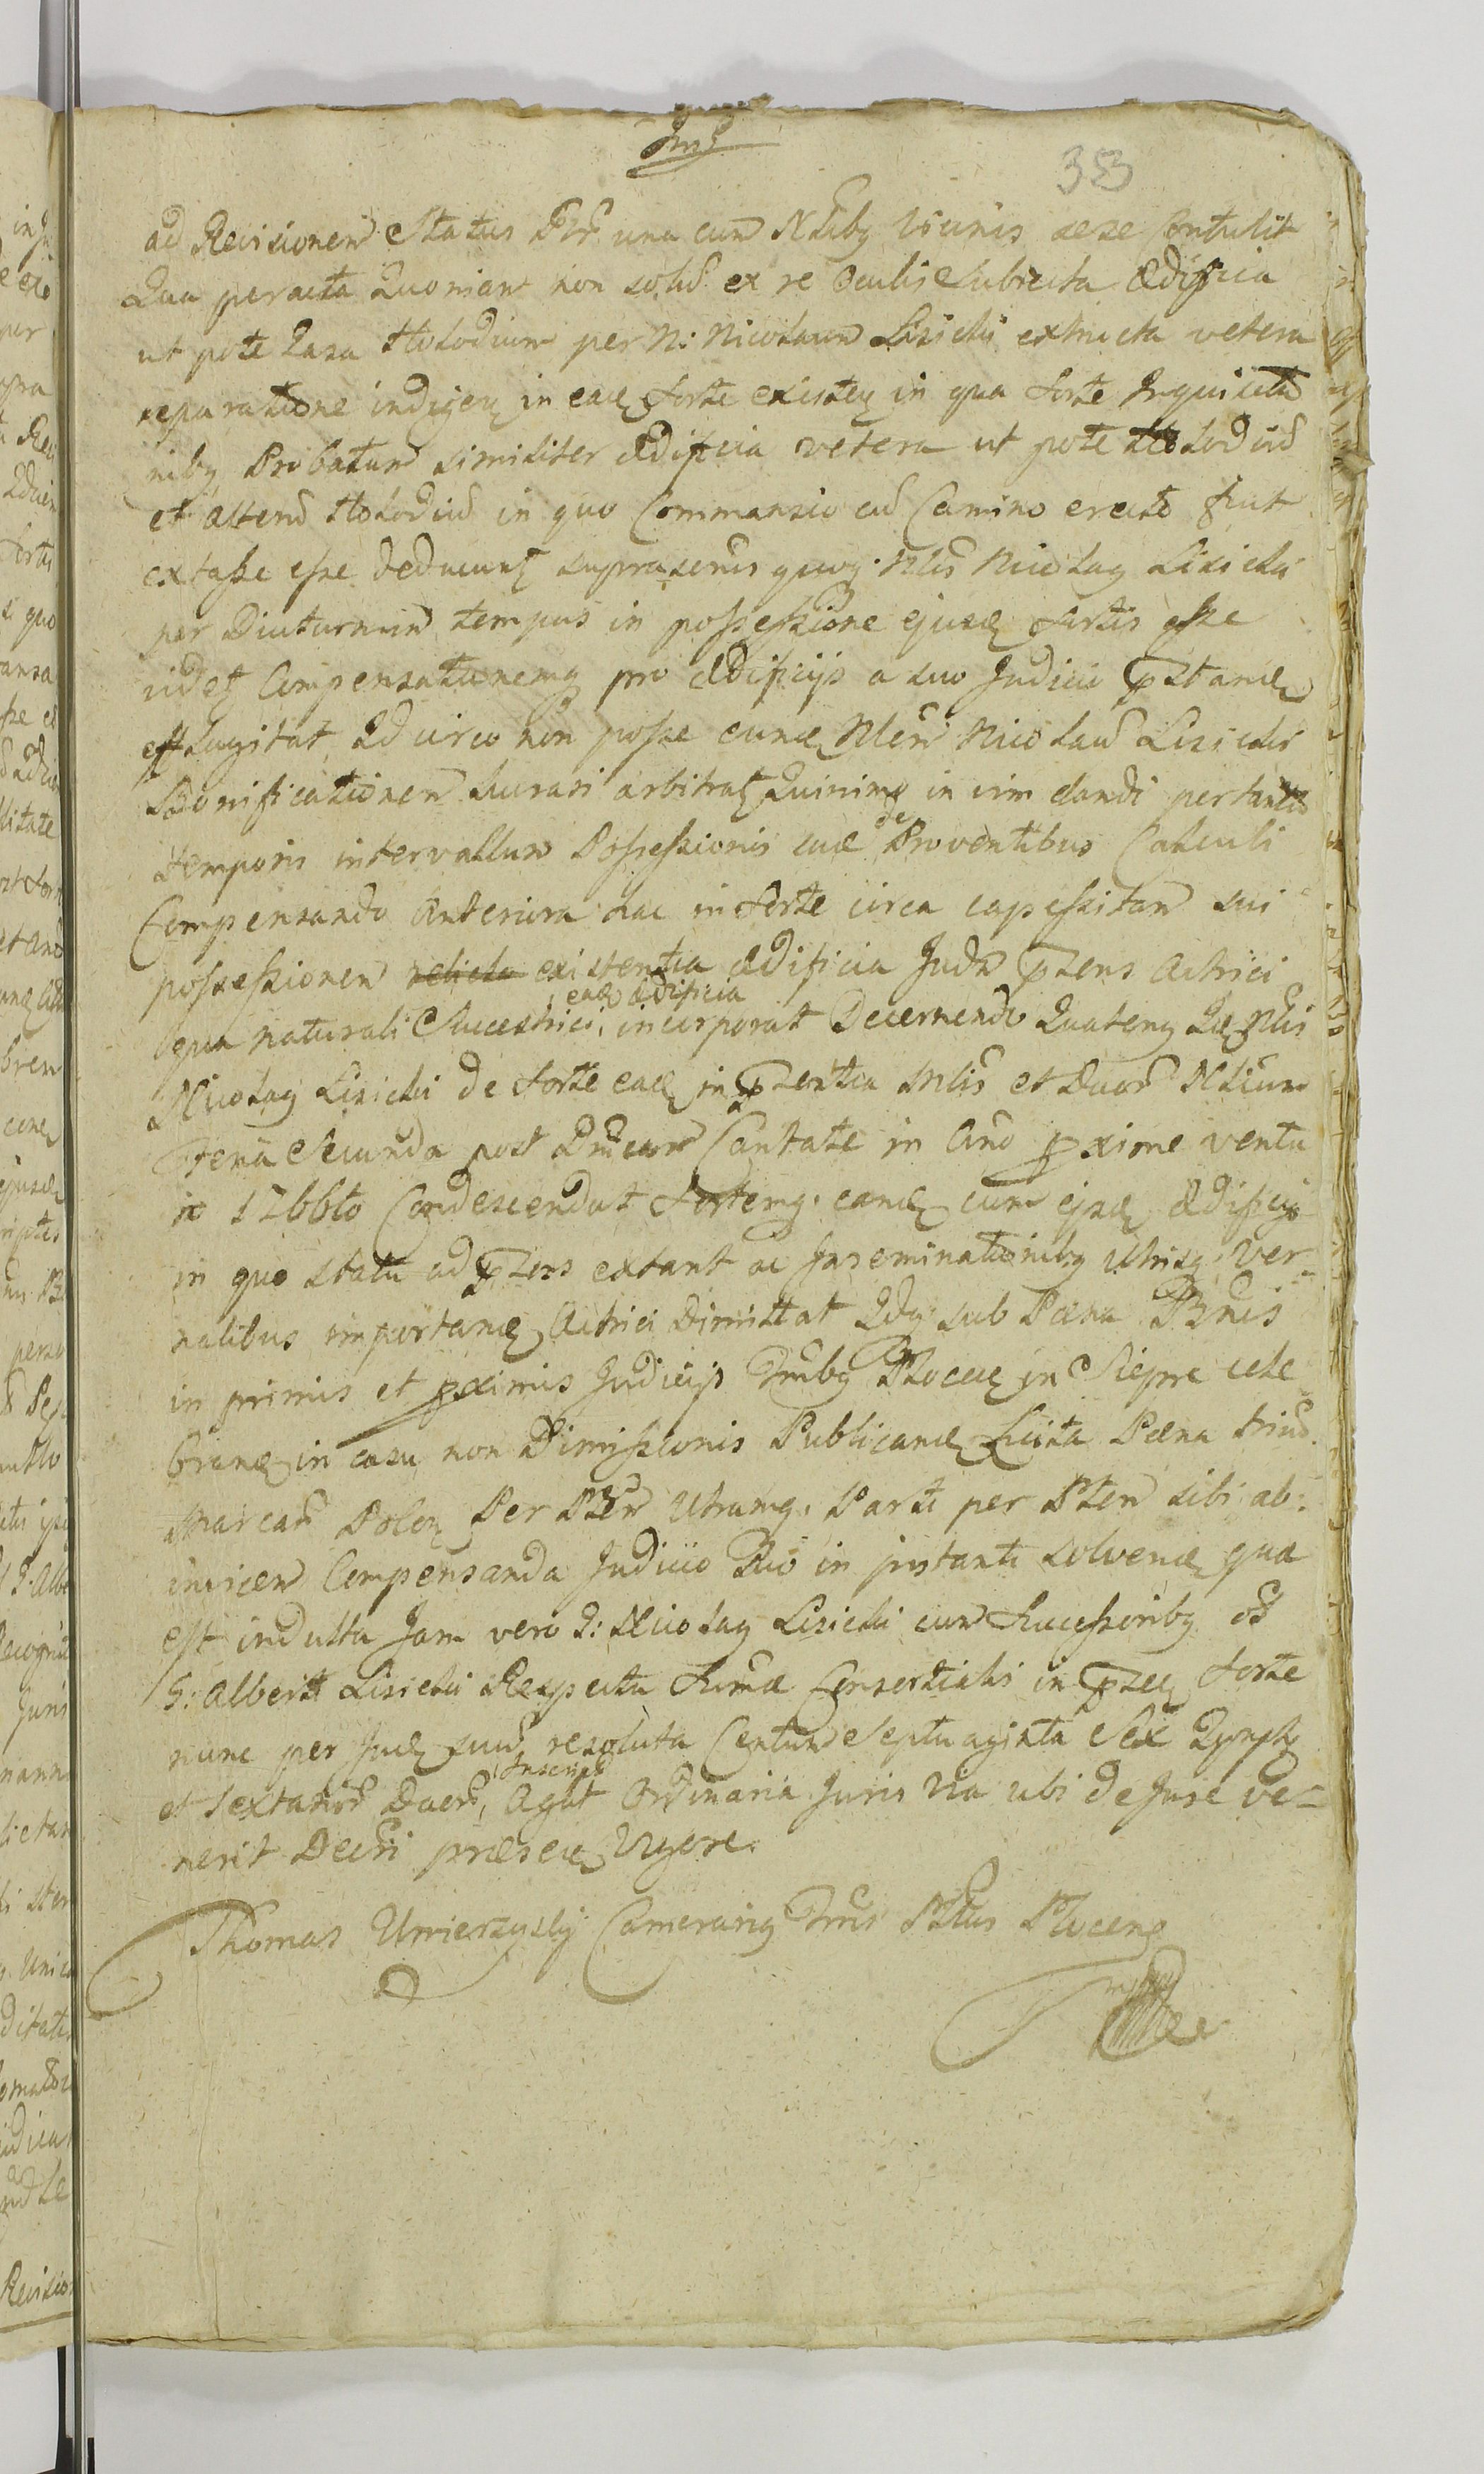 353
ad Revisionem Status una cum Nlibg Vicinis sese Contulit
Qua peracta Quoniam non solu ex re Oculis Subiecta Ædificia
ut pote Casa Holodium per N: Nicolaum Lisicki extructa vetera
reparatione indigen in eade Sorte existen in qua Sorte Inquisitio
nibg Probatum similiter Ædificia vetera ut pote Holodiu
et alteru Holodiu in quo Commansio cu Camino erecto fuit
extasse esse deducunt suprascrius quog. Nlis Nicolag Lisicki
per Diuturnum tempus in possessione ejusde Sortis esse
videt Compensationemg pro Ædificijs a suo Judicio
efflagitat, Idcirco non posse eunde Nlem Nicolau Lisicki
Bonificationem lucrari arbitrat Quinimo in vim dandi per tanti
temporis intervallum Possessionis suæ de Proventibus Calculi
Compensando Anteriora hac in Sorte circa capessitam sui
possessionem relicta existentia ædificia Judm pzens Actrici
qua naturali Successtrici, eade ædificia incorporat Decernendo Quateng Idem Nlis
Nicolag Lisicki de Sorte eade in pzentia Mlis et Duor Nlium
Feria Secunda post Dnicam Cantate in Ano pxime ventu
ro 1766to Condescendat Sortemg. eande cum ejsde Ædificijs
in quo statu ad pzens extant ac Inseminationibg utrisg. Ver-
nalibus importande Actrici Dimittat Idg sub Pæna Bnis
in primis et pximis Judicijs Trnibg Plocen in Sierpc cele
brande in casu non Dimissionis Publicande Luita Pæna triu
Marcaru Polon Per Ptem Utramg. Parti per Ptem sibi ab.
invicem Compensanda Judicio Suo in instanti solvende qua
est indulta Jam vero I: Nicolag Lisicki cum Successoribg
G: Albert Lisicki Respectu Sumæ Consertialis in pzen Sorte
nunc per Jud suu resoluta Centum Septuaginta Sex Tymph
et Sextanor Duor, Inscript Agat Ordinaria Juris Via ubi de Jure ve-
nerit Decri præsen Vigore.
Thomas Umierzyski Camerarig Trris Pltus Plocens